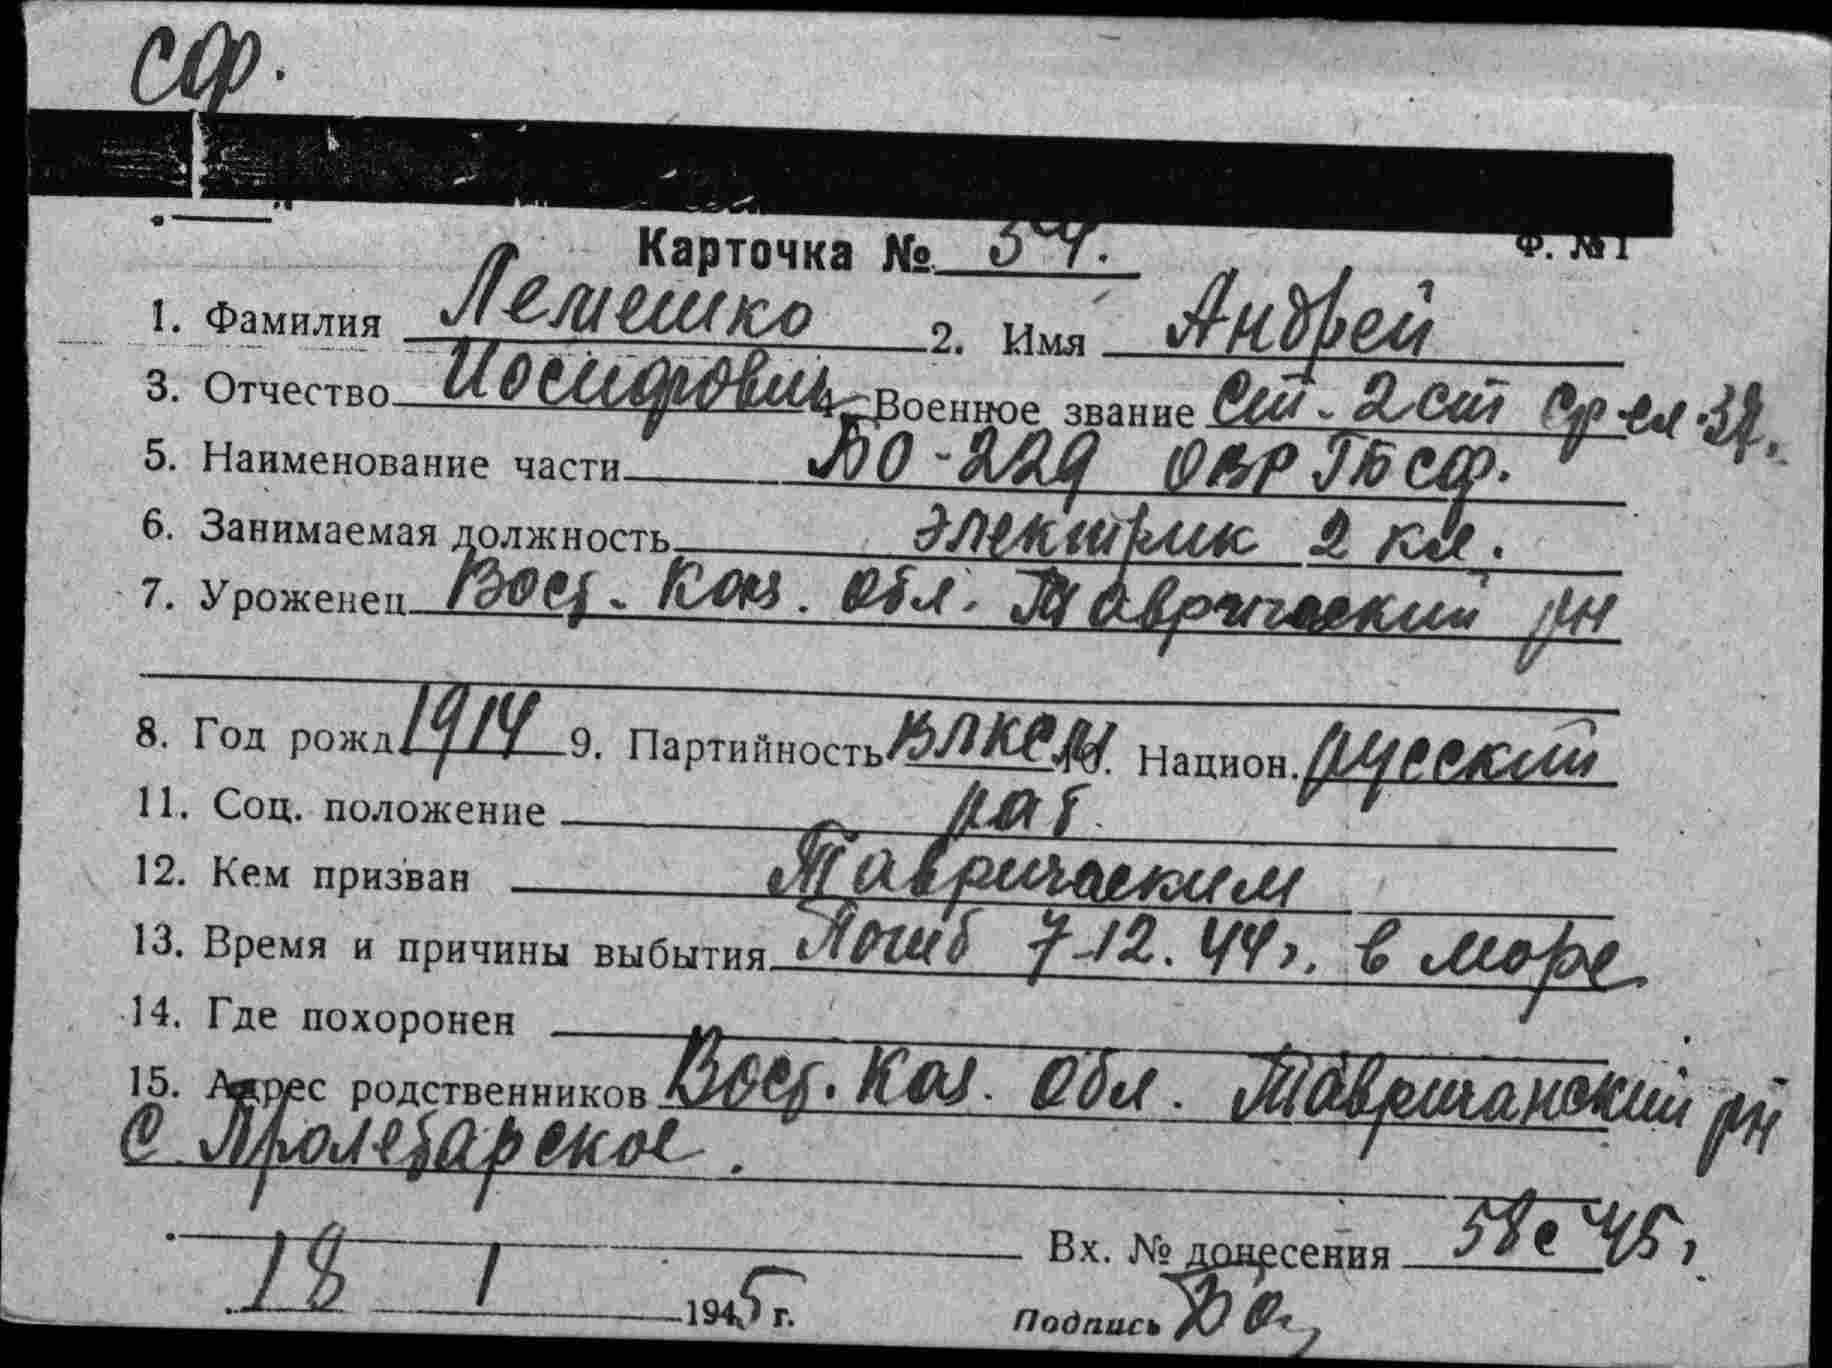 СФ.
Карточка № 54. Ф. №1
1. Фамилия Лемешко 2. Имя Андрей
3. Отчество Иосифович 4. Военное звание Ст. 2 ст Ср сл. 37.
5. Наименование части БО-229 ОВР ГБ СФ.
6. Занимаемая должность электрик 2 кл.
7. Уроженец Вост. Каз. обл. Таврический рн
8. Год рожд 1914 9. Партийность ВЛКСМ 10. Национ. русский
11. Соц. положение раб.
12. Кем призван Тавричаским
13. Время и причины выбытия Погиб 7-12.44г. в море
14. Где похоронен
15. Адрес родственников Вост. Каз. обл. Тавричанский рн
с Пролетарское.
Вх. № донесения 58с 45г
18 1 1945 г. Подпись